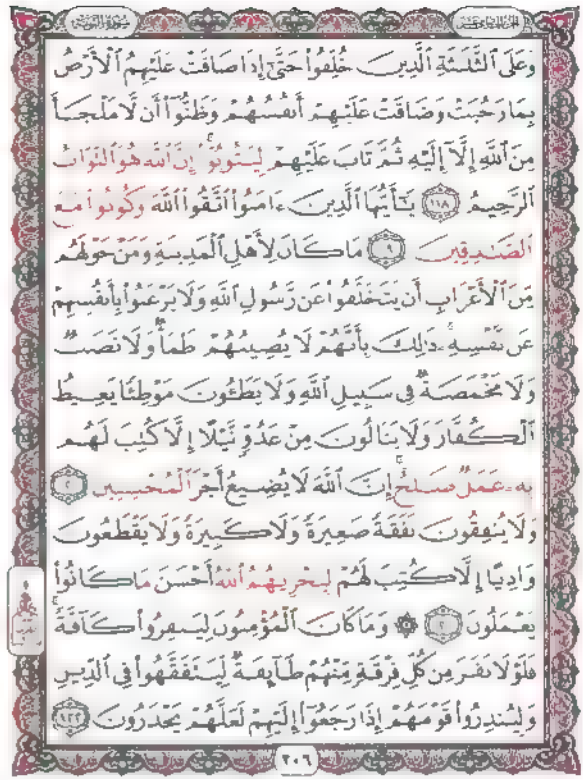 سورة التوبة
الجزء الحادي عشر
وَعَلَى ٱلثَّلَٰثَةِ ٱلَّذِينَ خُلِّفُوا۟ حَتَّىٰٓ إِذَا ضَاقَتْ عَلَيْهِمُ ٱلْأَرْضُ
بِمَا رَحُبَتْ وَضَاقَتْ عَلَيْهِمْ أَنفُسُهُمْ وَظَنُّوٓا۟ أَن لَّا مَلْجَأَ
مِنَ ٱللَّهِ إِلَّآ إِلَيْهِ ثُمَّ تَابَ عَلَيْهِمْ لِيَتُوبُوٓا۟ ۚ إِنَّ ٱللَّهَ هُوَ ٱلتَّوَّابُ
ٱلرَّحِيمُ ١١٨ يَٰٓأَيُّهَا ٱلَّذِينَ ءَامَنُوا۟ ٱتَّقُوا۟ ٱللَّهَ وَكُونُوا۟ مَعَ
ٱلصَّٰدِقِينَ مَا كَانَ لِأَهْلِ ٱلْمَدِينَةِ وَمَنْ حَوْلَهُم
مِّنَ ٱلْأَعْرَابِ أَن يَتَخَلَّفُوا۟ عَن رَّسُولِ ٱللَّهِ وَلَا يَرْغَبُوا۟ بِأَنفُسِهِمْ
عَن نَّفْسِهِۦ ۚ ذَٰلِكَ بِأَنَّهُمْ لَا يُصِيبُهُمْ ظَمَأٌ وَلَا نَصَبٌ
وَلَا مَخْمَصَةٌ فِى سَبِيلِ ٱللَّهِ وَلَا يَطَـُٔونَ مَوْطِئًا يَغِيظُ
ٱلْكُفَّارَ وَلَا يَنَالُونَ مِنْ عَدُوٍّ نَّيْلًا إِلَّا كُتِبَ لَهُم
بِهِۦ عَمَلٌ صَٰلِحٌ ۚ إِنَّ ٱللَّهَ لَا يُضِيعُ أَجْرَ ٱلْمُحْسِنِينَ
وَلَا يُنفِقُونَ نَفَقَةً صَغِيرَةً وَلَا كَبِيرَةً وَلَا يَقْطَعُونَ
وَادِيًا إِلَّا كُتِبَ لَهُمْ لِيَجْزِيَهُمُ ٱللَّهُ أَحْسَنَ مَا كَانُوا۟
يَعْمَلُونَ ۞ وَمَا كَانَ ٱلْمُؤْمِنُونَ لِيَنفِرُوا۟ كَآفَّةً ۚ
فَلَوْلَا نَفَرَ مِن كُلِّ فِرْقَةٍ مِّنْهُمْ طَآئِفَةٌ لِّيَتَفَقَّهُوا۟ فِى ٱلدِّينِ
وَلِيُنذِرُوا۟ قَوْمَهُمْ إِذَا رَجَعُوٓا۟ إِلَيْهِمْ لَعَلَّهُمْ يَحْذَرُونَ ١٢٢
٢٠٦